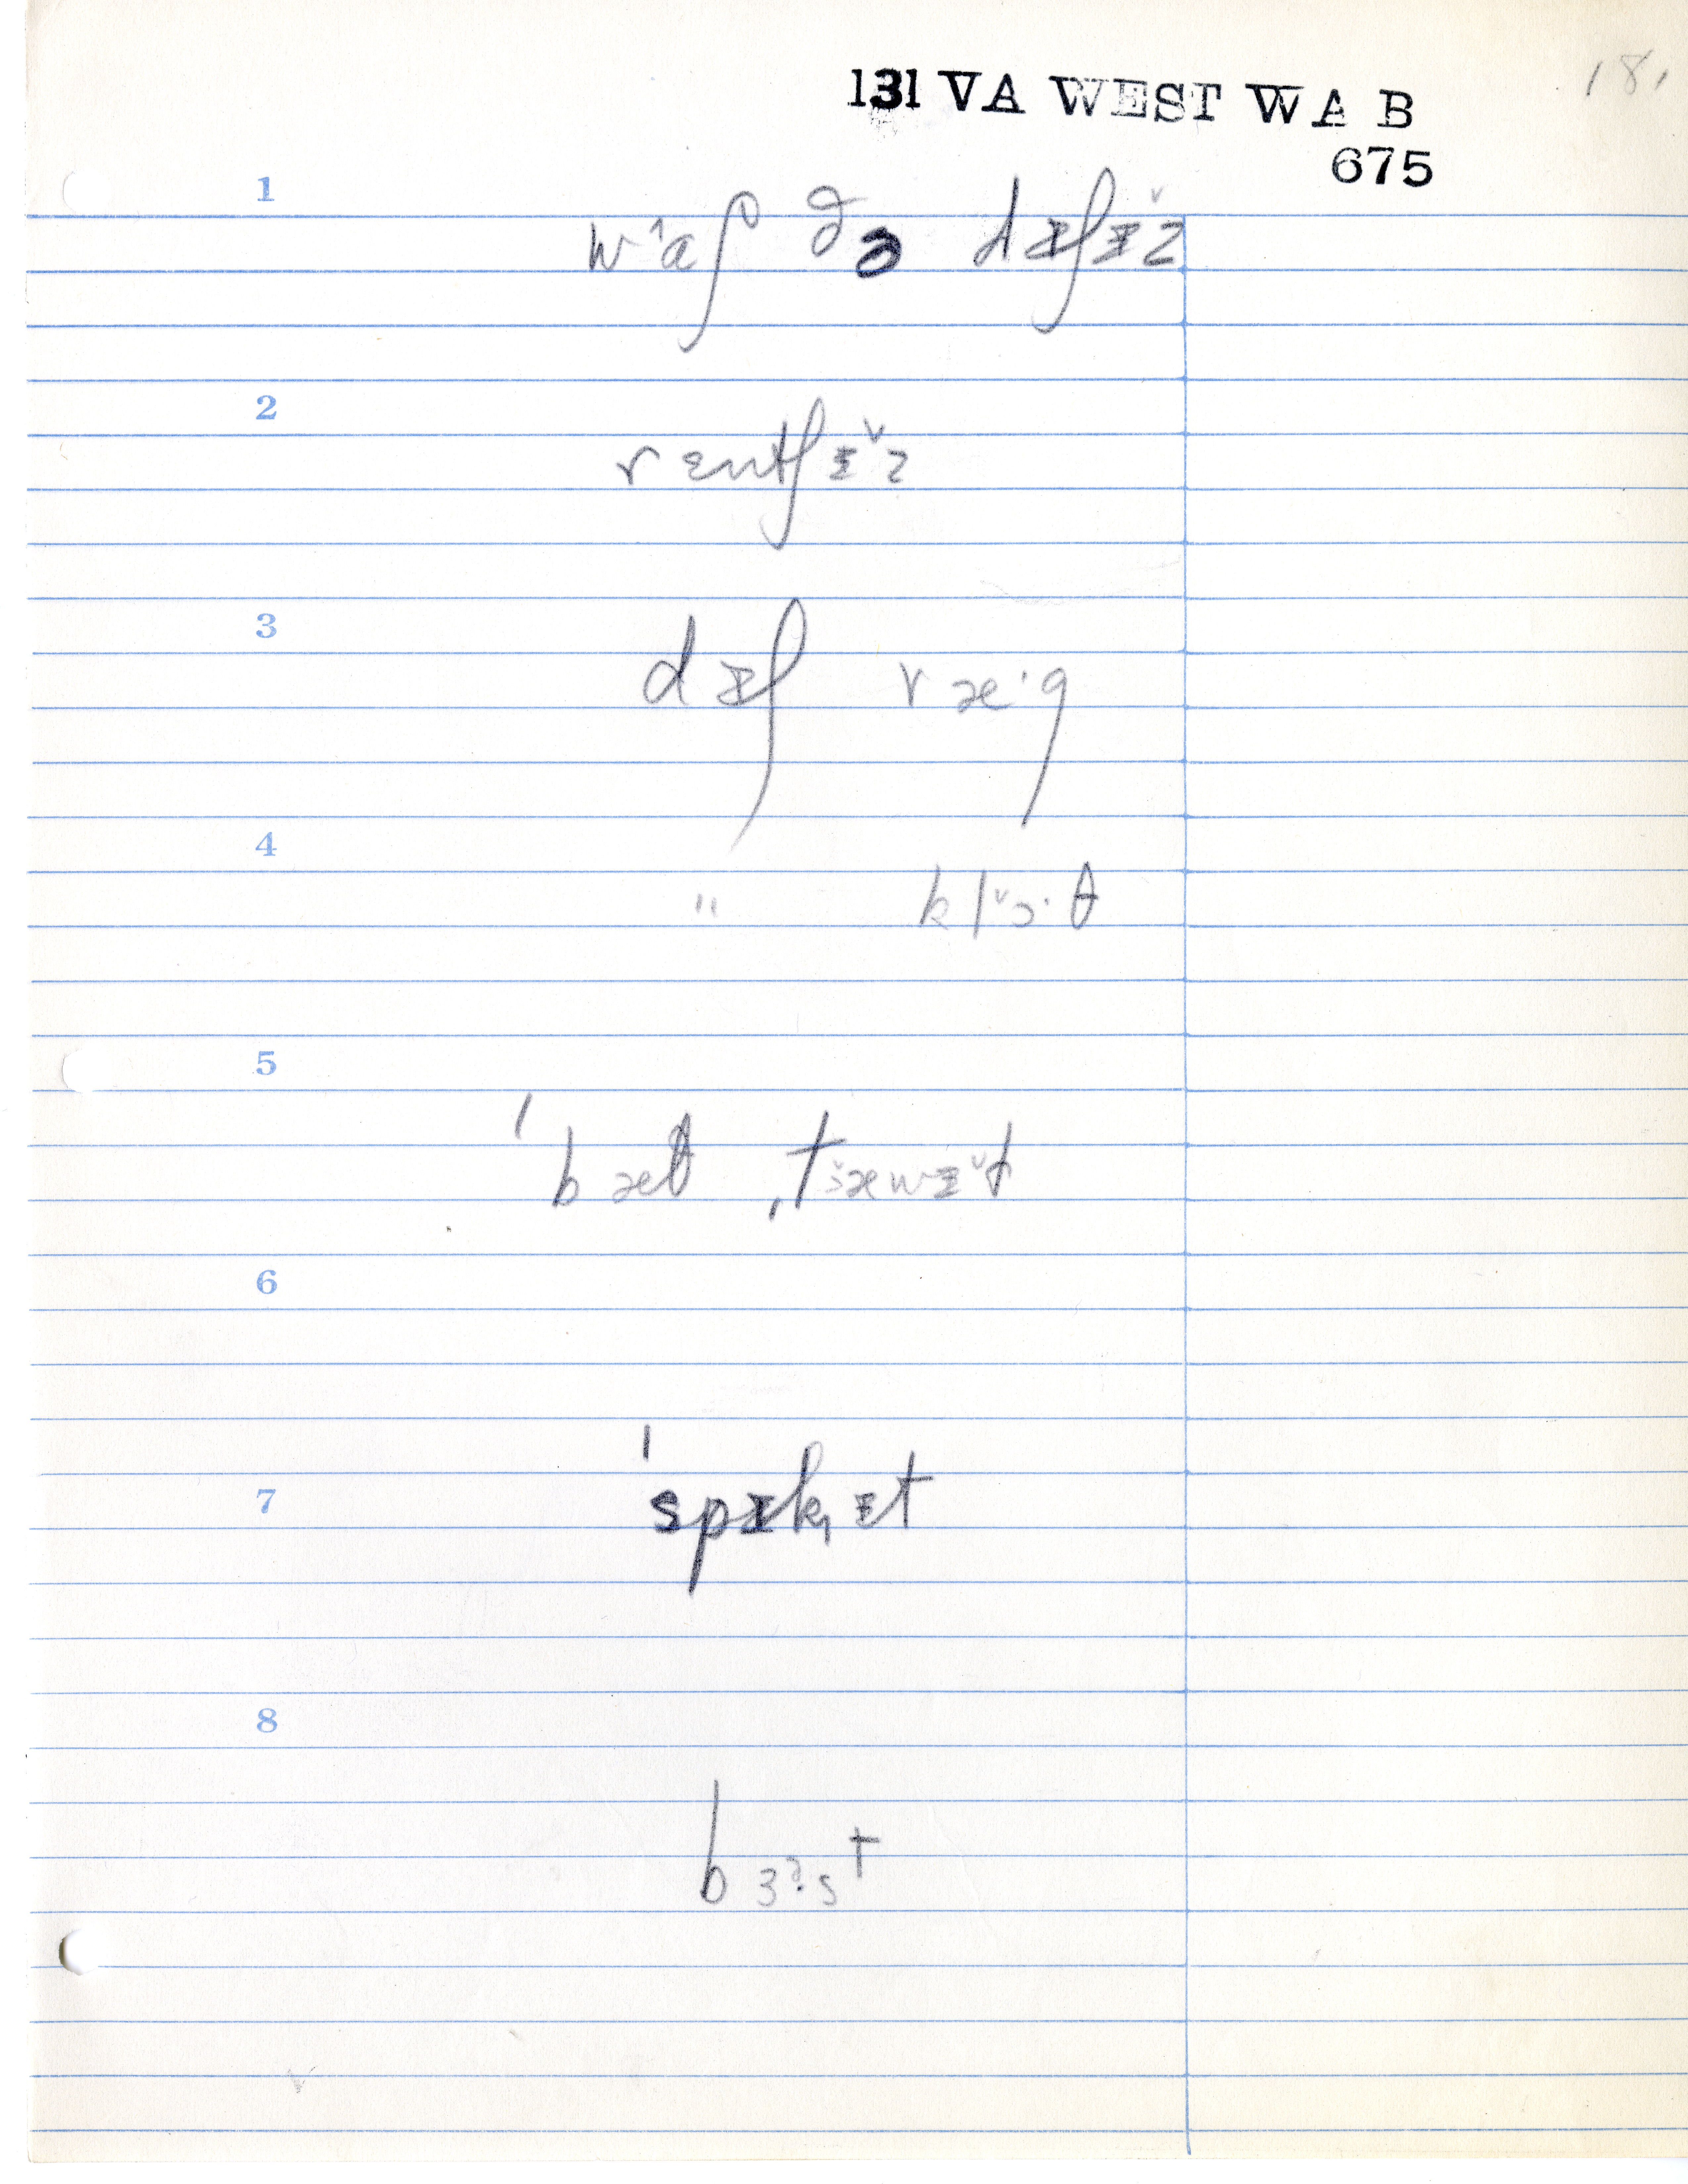 181
131 VA WEST WAB
675
1
wˆɑʃ ðə dɪʃɪ̌z
2
rɛntʃɪ̌z
3
dɪʃ ræ·g
4
" klɔ̌·θ
5
ˈbæθ ˌtæwɪ̌t
6
7
ˈspɪk̟ɪt
8
bɜɚ·st